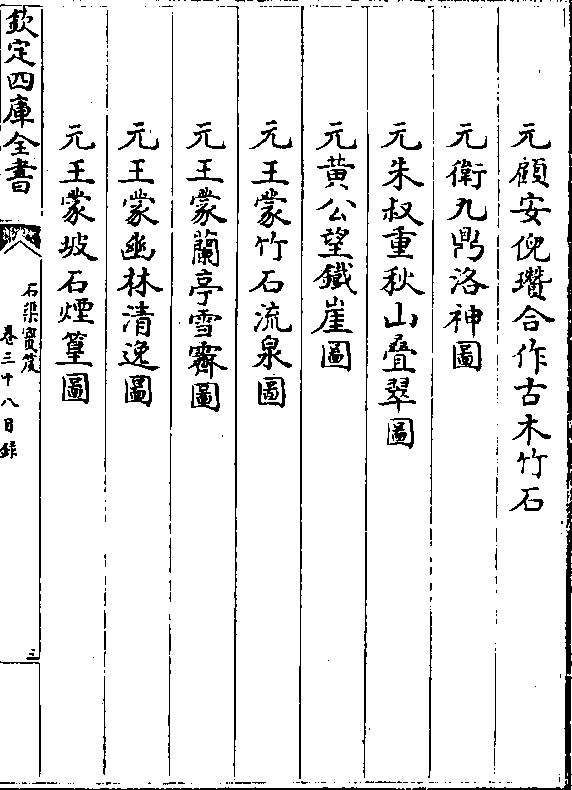 元顧安倪瓚合作古木竹石
元衛九鼎洛神圖
元朱叔重秋山疊翠圖
元黃公望鐵崖圖
元王蒙竹石流泉圖
元王蒙蘭亭雪霽圖
元王蒙幽林清逸圖
元王蒙坡石煙篁圖
欽定四庫全書
石渠寳笈
卷三十八目錄
三